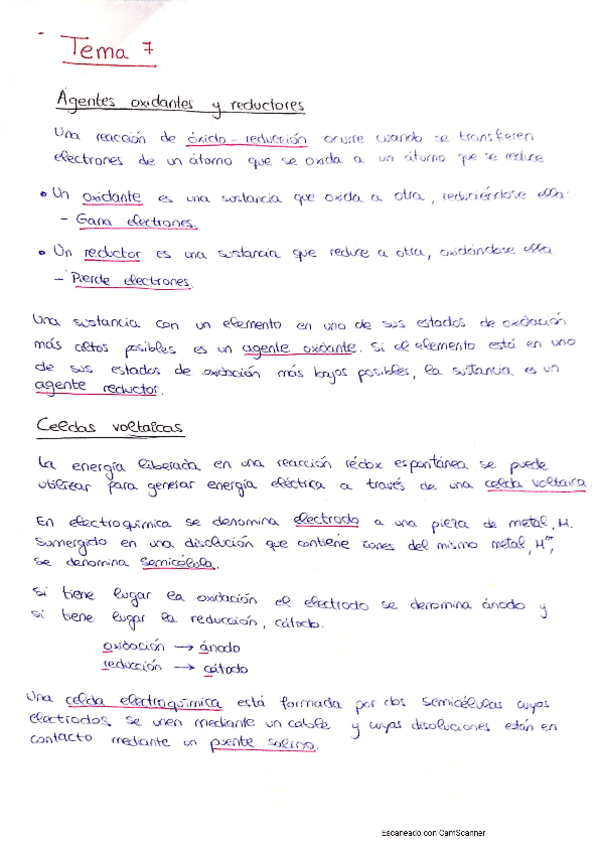 Tema 7
Agentes oxidantes y reductores
Una reacción de óxido-reducción ocurre cuando se transfieren
electrones de un átomo que se oxida a un átomo que se reduce
• Un oxidante es una sustancia que oxida a otra, reduciéndose ella.
- Gana electrones.
• Un reductor es una sustancia que reduce a otra, oxidándose ella
- Pierde electrones.
Una sustancia con un elemento en uno de sus estados de oxidación
más altos posibles es un agente oxidante. Si el elemento está en uno
de sus estados de oxidación más bajos posibles, la sustancia es un
agente reductor.
Celdas voltaicas
La energía liberada en una reacción rédox espontánea se puede
utilizar para generar energía eléctrica a través de una celda voltaica.
En electroquímica se denomina electrodo a una pieza de metal, M.
sumergido en una disolución que contiene iones del mismo metal, Mⁿ⁺,
se denomina semicélula.
Si tiene lugar la oxidación el electrodo se denomina ánodo y
si tiene lugar la reducción, cátodo.
oxidación → ánodo
reducción → cátodo
Una celda electroquímica está formada por dos semicélulas cuyos
electrodos se unen mediante un cable y cuyas disoluciones están en
contacto mediante un puente salino.
Escaneado con CamScanner